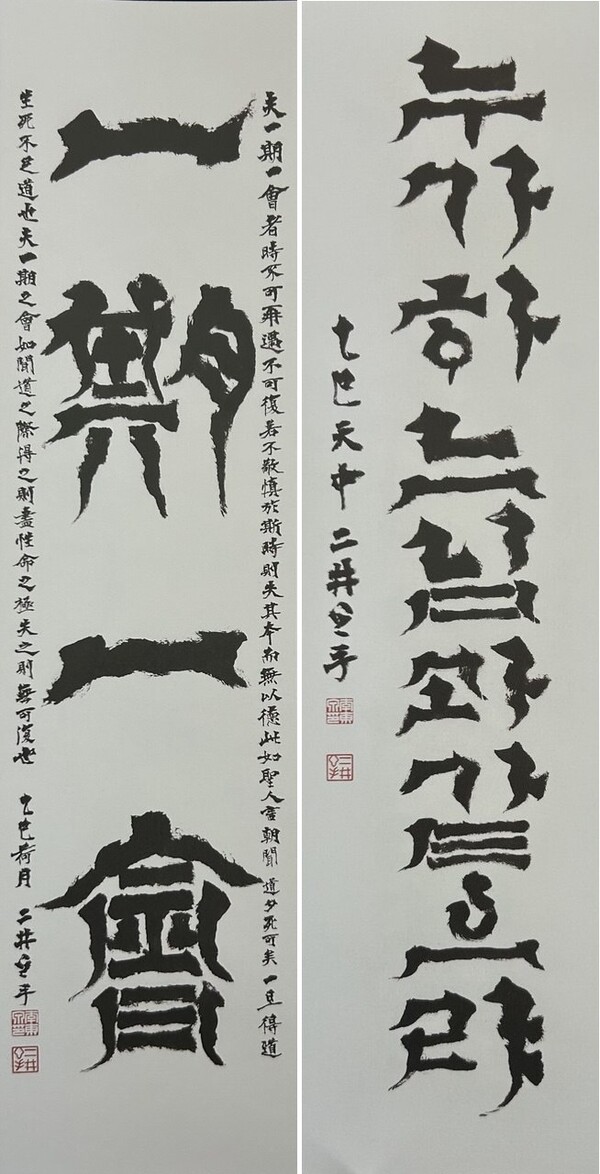 夫一期一會者時不可再遇不可復若不敬慎於斯時則失其本而無以德此如聖人言朝聞道夕死可矣一旦得道
一期一會
生死不足道也夫一期之會如聞道之際得之則盡性命之極失之則無可復也 乙巳荷月 二井
누가하느님과같으랴
乙巳天中 二井